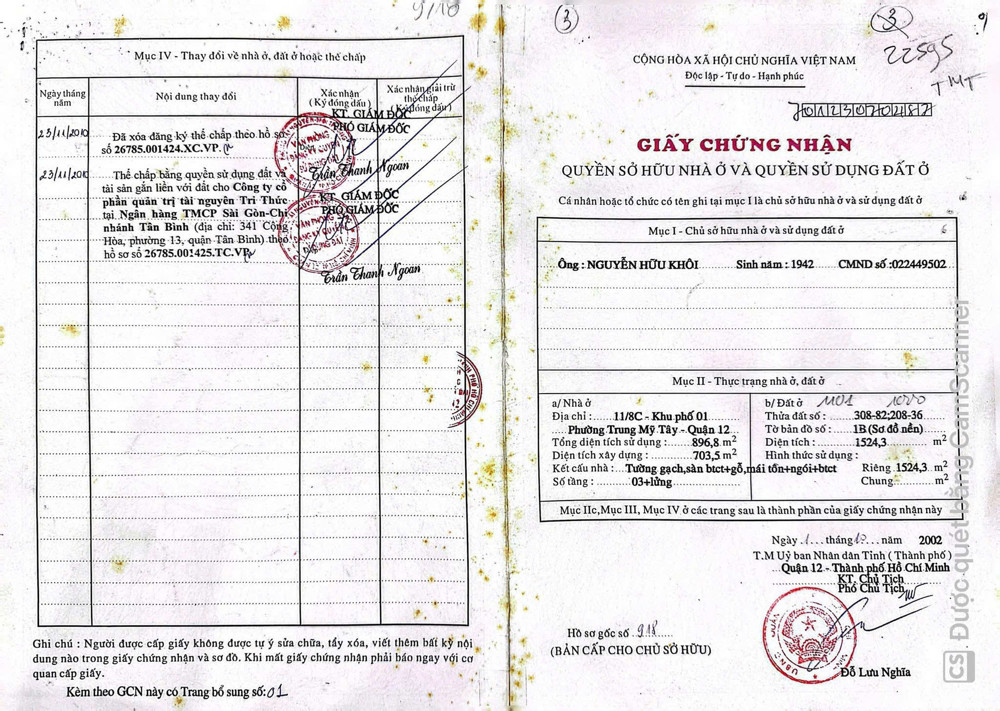 9/10
Mục IV - Thay đổi về nhà ở, đất ở hoặc thế chấp
Ngày tháng năm
Nội dung thay đổi
Xác nhận (Ký đóng dấu)
Xác nhận giải trừ thế chấp (Ký đóng dấu)
23/11/2010
Đã xóa đăng ký thế chấp theo hồ sơ
số 26785.001424.XC.VP.
KT. GIÁM ĐỐC
PHÓ GIÁM ĐỐC
Trần Thanh Ngoan
23/11/2010
Thế chấp bằng quyền sử dụng đất và
tài sản gắn liền với đất cho Công ty cổ
phần quản trị tài nguyên Tri Thức
tại Ngân hàng TMCP Sài Gòn-Chi
nhánh Tân Bình (địa chỉ: 341 Cộng
Hòa, phường 13, quận Tân Bình) theo
hồ sơ số 26785.001425.TC.VP.
KT. GIÁM ĐỐC
PHÓ GIÁM ĐỐC
Trần Thanh Ngoan
Ghi chú : Người được cấp giấy không được tự ý sửa chữa, tẩy xóa, viết thêm bất kỳ nội
dung nào trong giấy chứng nhận và sơ đồ. Khi mất giấy chứng nhận phải báo ngay với cơ
quan cấp giấy.
Kèm theo GCN này có Trang bổ sung số: 01
3
3
22595
TMT
CỘNG HÒA XÃ HỘI CHỦ NGHĨA VIỆT NAM
Độc lập - Tự do - Hạnh phúc
GIẤY CHỨNG NHẬN
QUYỀN SỞ HỮU NHÀ Ở VÀ QUYỀN SỬ DỤNG ĐẤT Ở
Cá nhân hoặc tổ chức có tên ghi tại mục I là chủ sở hữu nhà ở và sử dụng đất ở
Mục I - Chủ sở hữu nhà ở và sử dụng đất ở
Ông : NGUYỄN HỮU KHÔI Sinh năm : 1942 CMND số :022449502
Mục II - Thực trạng nhà ở, đất ở
a/ Nhà ở
Địa chỉ : 11/8C - Khu phố 01
Phường Trung Mỹ Tây - Quận 12
Tổng diện tích sử dụng : 896,8 m2
Diện tích xây dựng : 703,5 m2
Kết cấu nhà : Tường gạch,sàn btct+gỗ,mái tôn+ngói+btct
Số tầng : 03+lửng
b/ Đất ở 1101 1000
Thửa đất số : 308-82;208-36
Tờ bản đồ số : 1B(Sơ đồ nền)
Diện tích : 1524,3 m2
Hình thức sử dụng :
Riêng 1524,3 m2
Chung m2
Mục IIc,Mục III, Mục IV ở các trang sau là thành phần của giấy chứng nhận này
Ngày 1 tháng 10 năm 2002
T.M Uỷ ban Nhân dân Tỉnh ( Thành phố )
Quận 12 - Thành phố Hồ Chí Minh
KT. Chủ Tịch
Phó Chủ Tịch
Hồ sơ gốc số 918
(BẢN CẤP CHO CHỦ SỞ HỮU)
Đỗ Lưu Nghĩa
CS Được quét bằng CamScanner